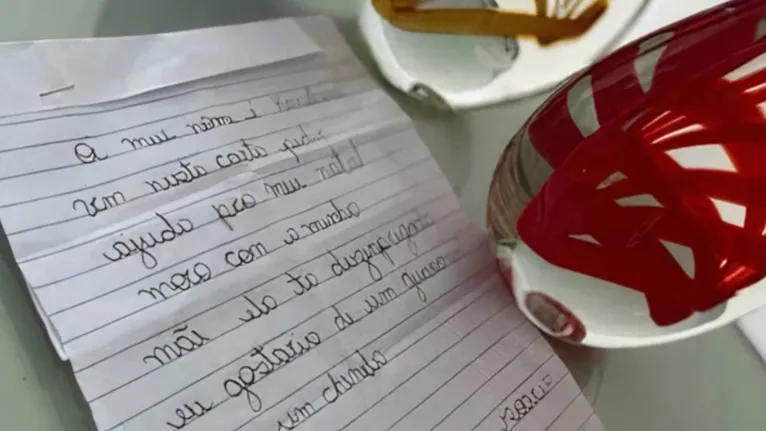 O meu nome é
vim nesta carta pedir
ajuda pro meu natal
moro con a minha
mãi ela ta dezimpregada
eu gostaria de um
um chinelo